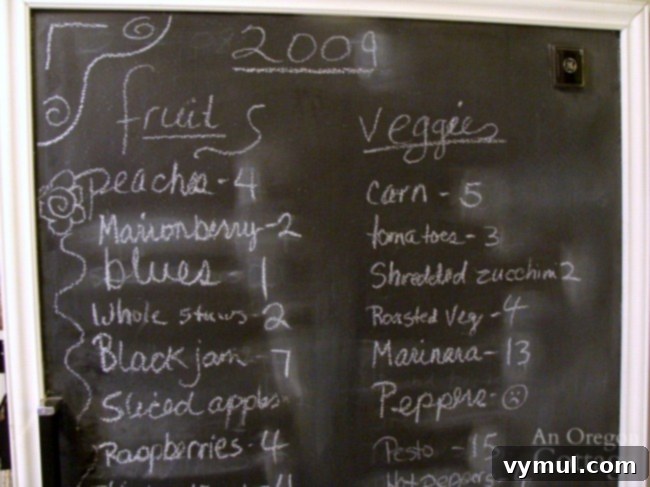 2009
fruits
peaches - 4
Marionberry - 2
blues - 1
Whole straws - 2
Black jam - 7
Sliced apples
Raspberries - 4
4
Veggies
Corn - 5
tomatoes - 3
Shredded zucchini 2
Roasted Veg - 4
Marinara - 13
Peppers - ☹
Pesto - 15
Hot peppers
An Orego
Cottag
vymul.com